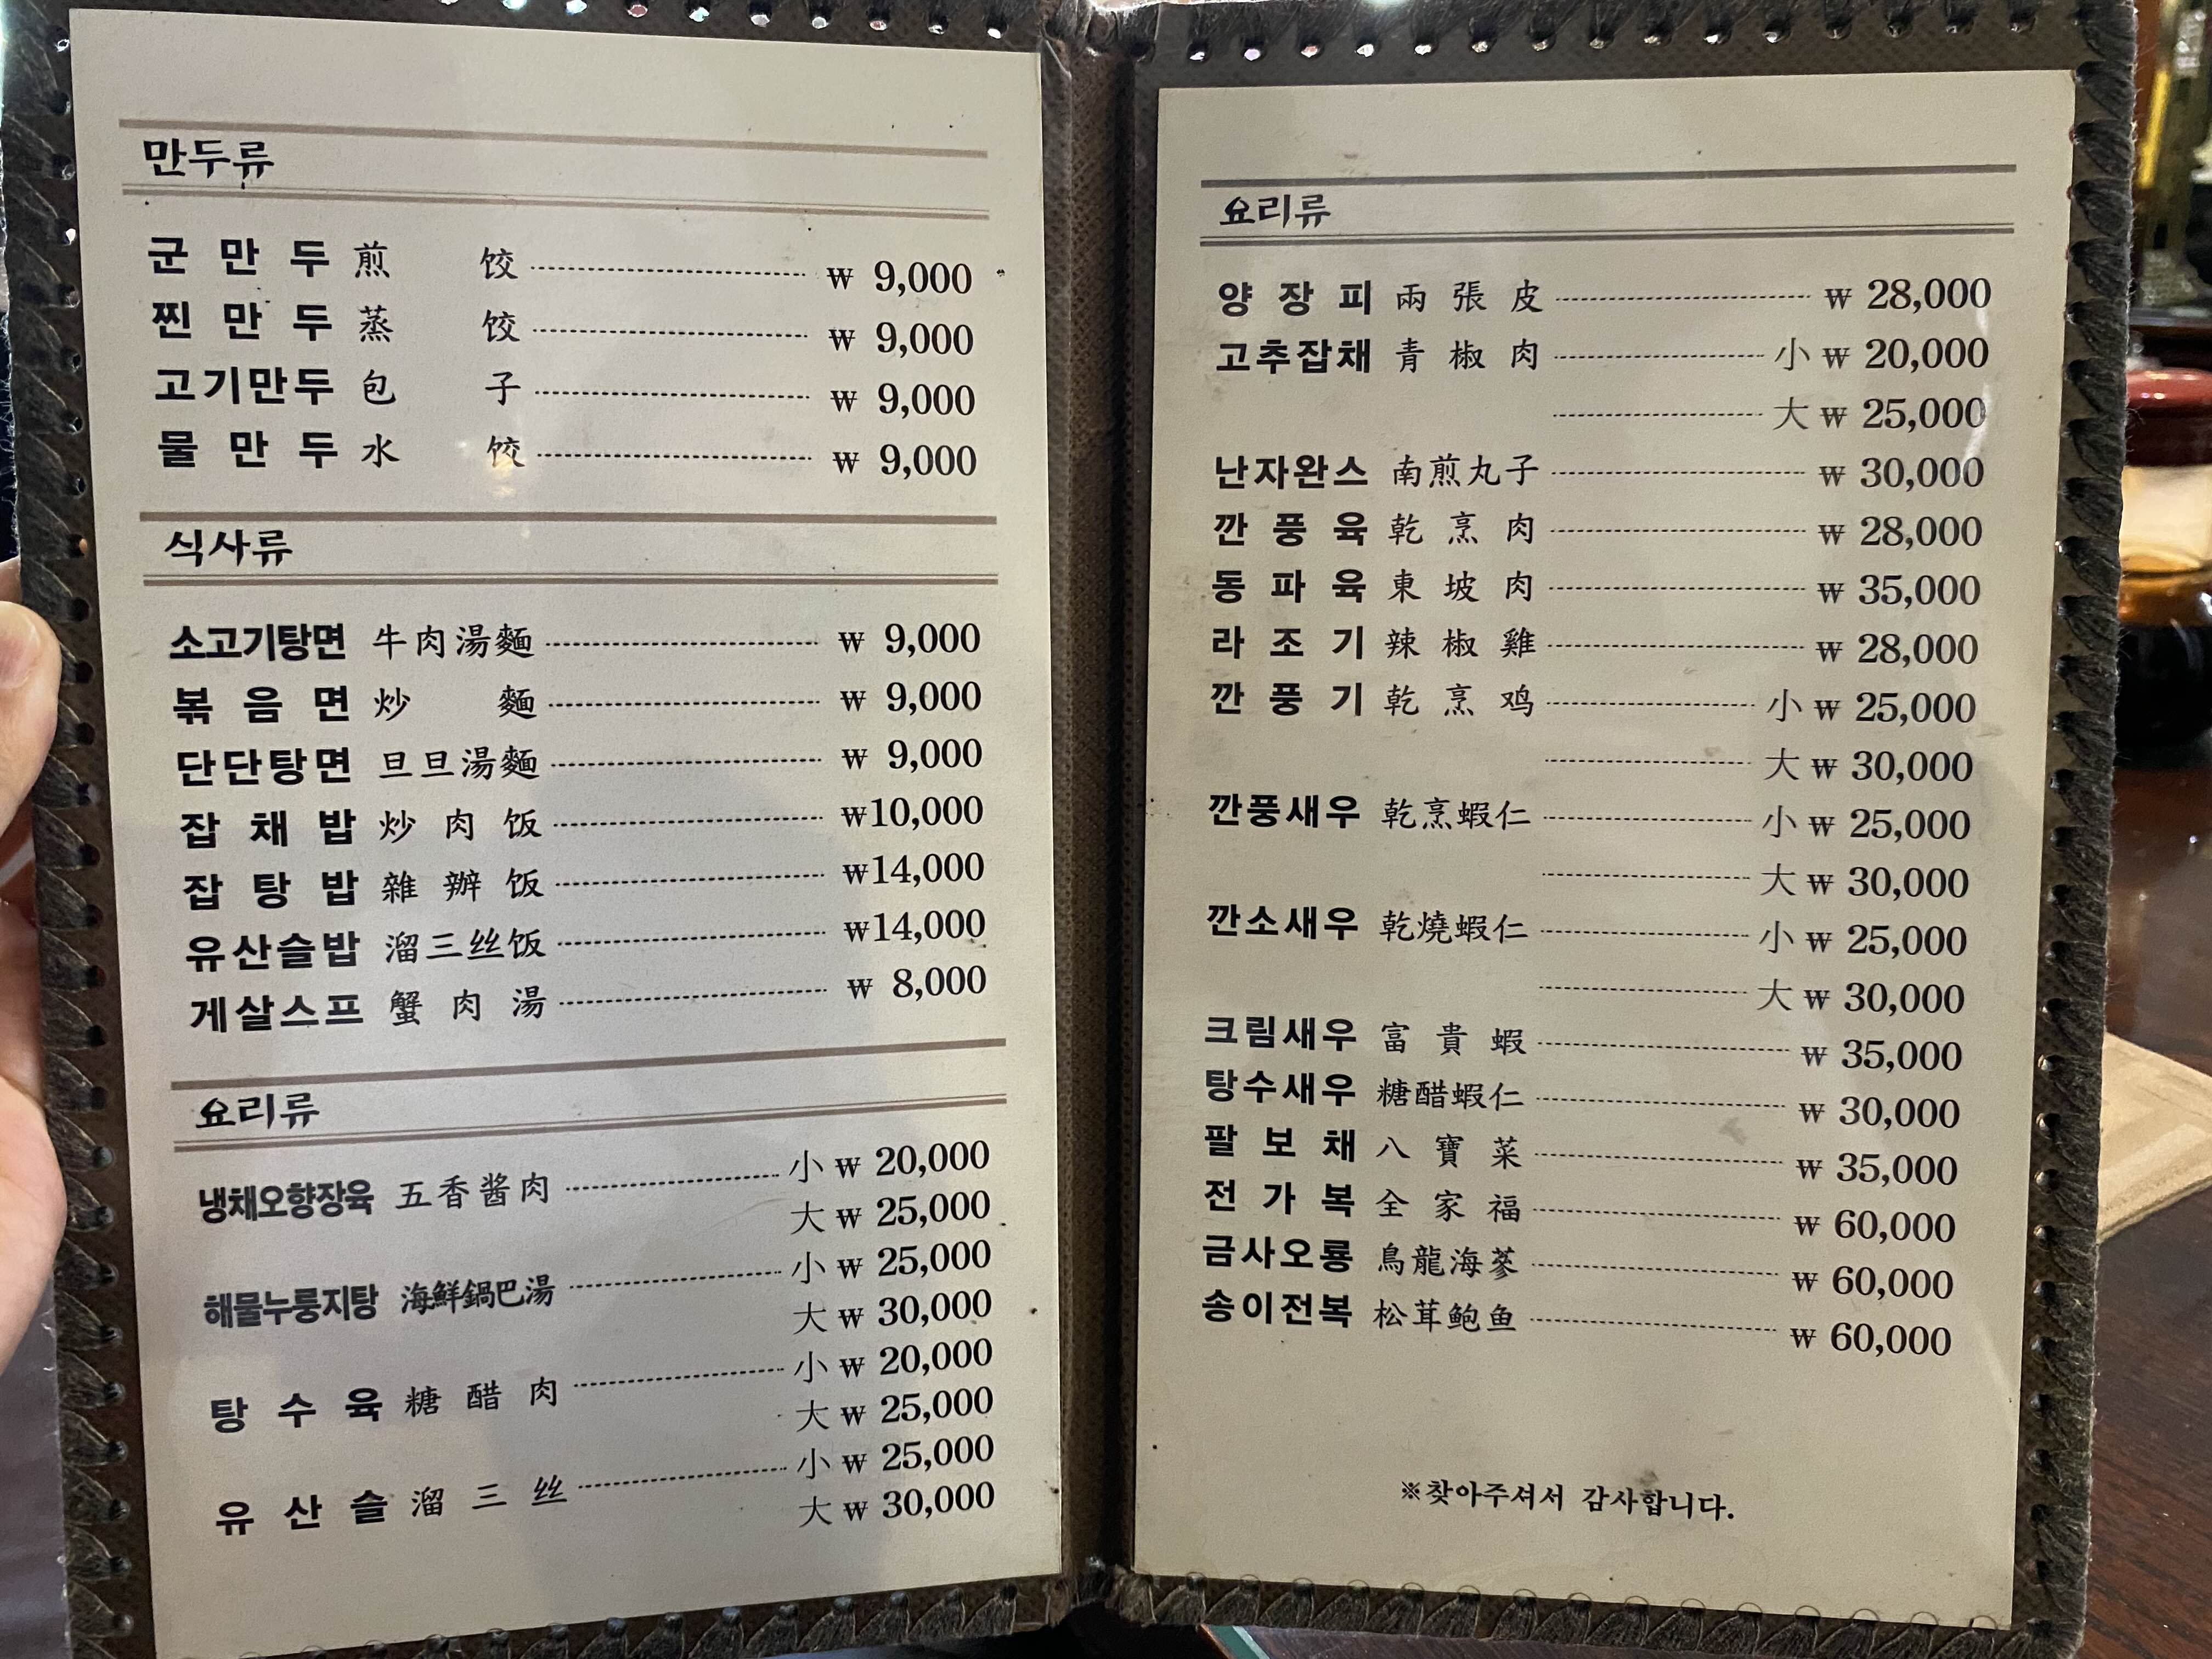 만두류
군만두 煎饺 ₩ 9,000
찐만두 蒸饺 ₩ 9,000
고기만두 包子 ₩ 9,000
물만두 水饺 ₩ 9,000
식사류
소고기탕면 牛肉湯麵 ₩ 9,000
볶음면 炒麵 ₩ 9,000
단단탕면 旦旦湯麵 ₩ 9,000
잡채밥 炒肉饭 ₩10,000
잡탕밥 雜辦饭 ₩14,000
유산슬밥 溜三丝饭 ₩14,000
게살스프 蟹肉湯 ₩ 8,000
요리류
냉채오향장육 五香酱肉 小 ₩ 20,000
大 ₩ 25,000
해물누룽지탕 海鮮鍋巴湯 小 ₩ 25,000
大 ₩ 30,000
탕수육 糖醋肉 小 ₩ 20,000
大 ₩ 25,000
유산슬 溜三丝 小 ₩ 25,000
大 ₩ 30,000
요리류
양장피 兩張皮 ₩ 28,000
고추잡채 青椒肉 小 ₩ 20,000
大 ₩ 25,000
난자완스 南煎丸子 ₩ 30,000
깐풍육 乾烹肉 ₩ 28,000
동파육 東坡肉 ₩ 35,000
라조기 辣椒雞 ₩ 28,000
깐풍기 乾烹鸡 小 ₩ 25,000
大 ₩ 30,000
깐풍새우 乾烹蝦仁 小 ₩ 25,000
大 ₩ 30,000
깐소새우 乾燒蝦仁 小 ₩ 25,000
大 ₩ 30,000
크림새우 富貴蝦 ₩ 35,000
탕수새우 糖醋蝦仁 ₩ 30,000
팔보채 八寶菜 ₩ 35,000
전가복 全家福 ₩ 60,000
금사오룡 鳥龍海蔘 ₩ 60,000
송이전복 松茸鲍鱼 ₩ 60,000
※찾아주셔서 감사합니다.